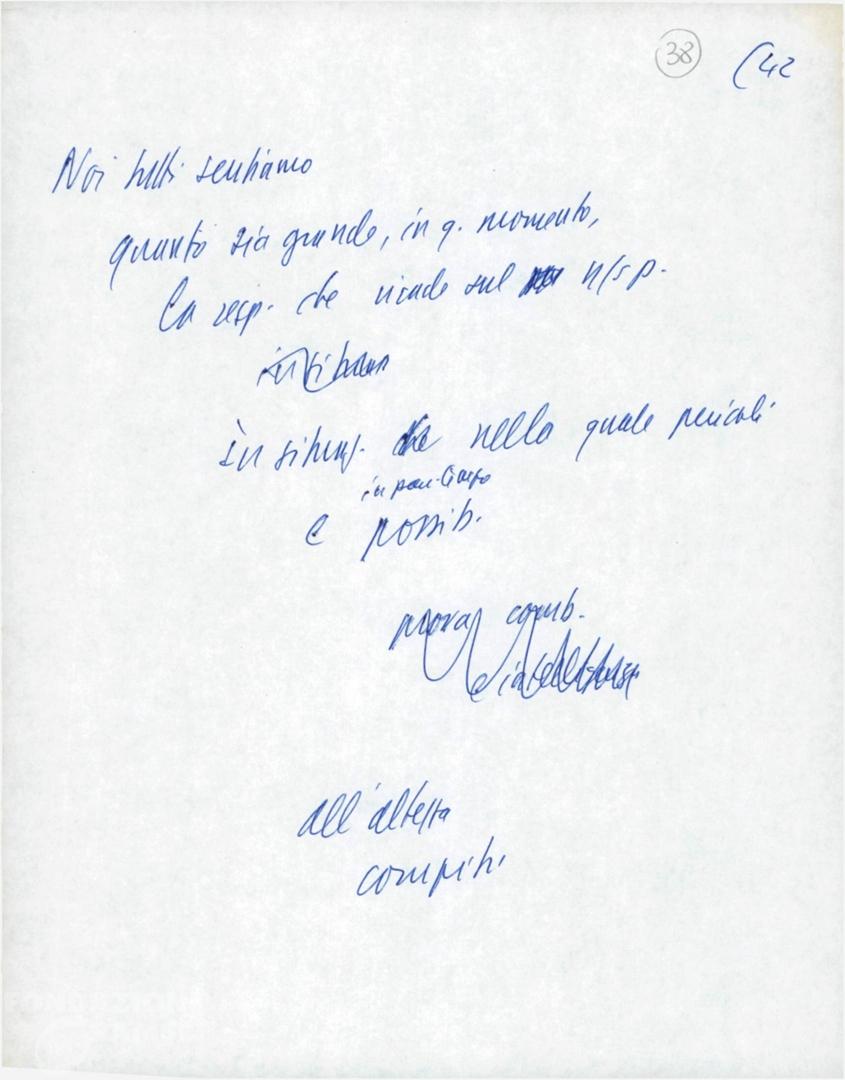 38 (42
Noi tutti sentiamo
quanto sia grande, in q. momento,
la resp. che ricade sul n/s p.
in situaz. nella quale pericoli
e possib.
prova comb.
all'altezza
compiti